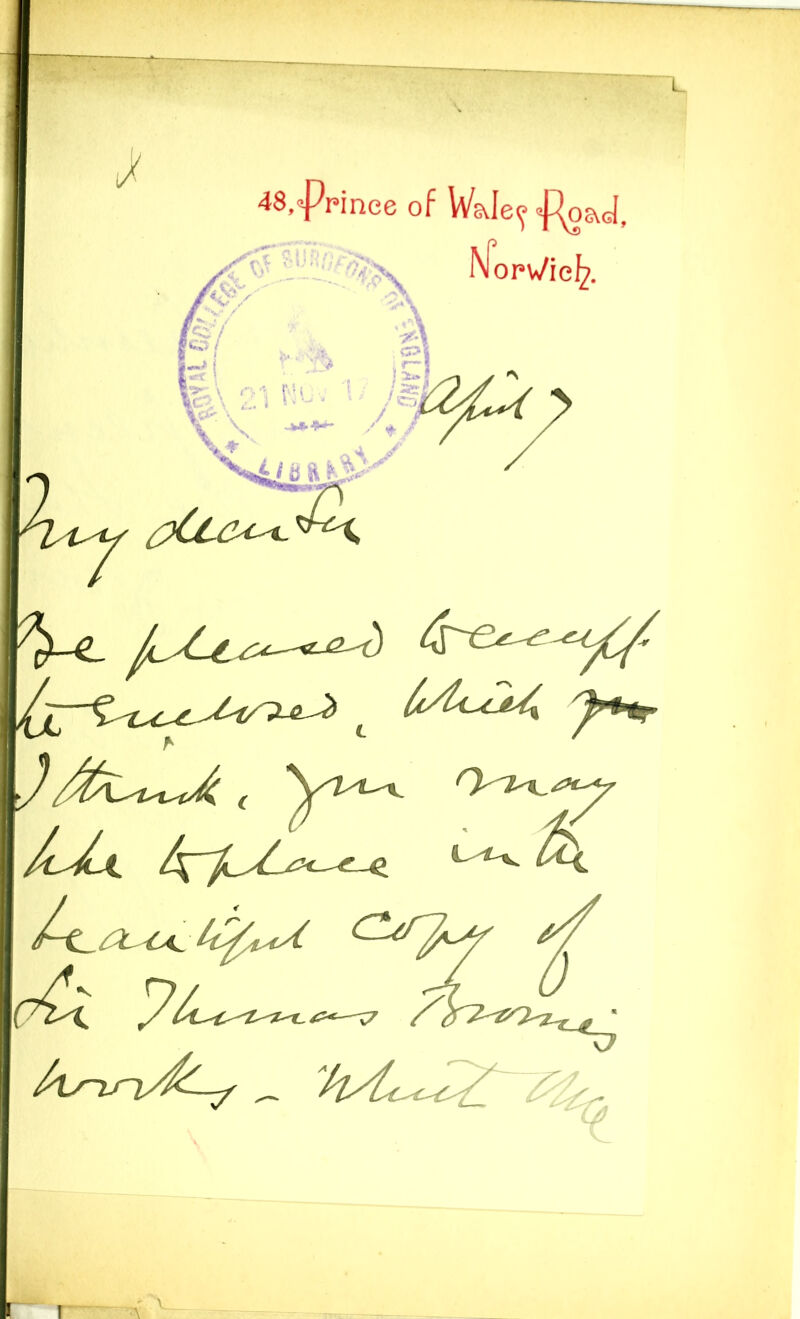 48, Prince of Wales Road,
Norwich.
ROYAL COLLEGE OF SURGEONS OF ENGLAND
21 NOV 17
LIBRARY
April 7
My dear Sir
Be pleased to accept
the Enclosed, which you
I think, you may
like to place in the
beautiful copy of
Sir Thomas Browne's
works - What the